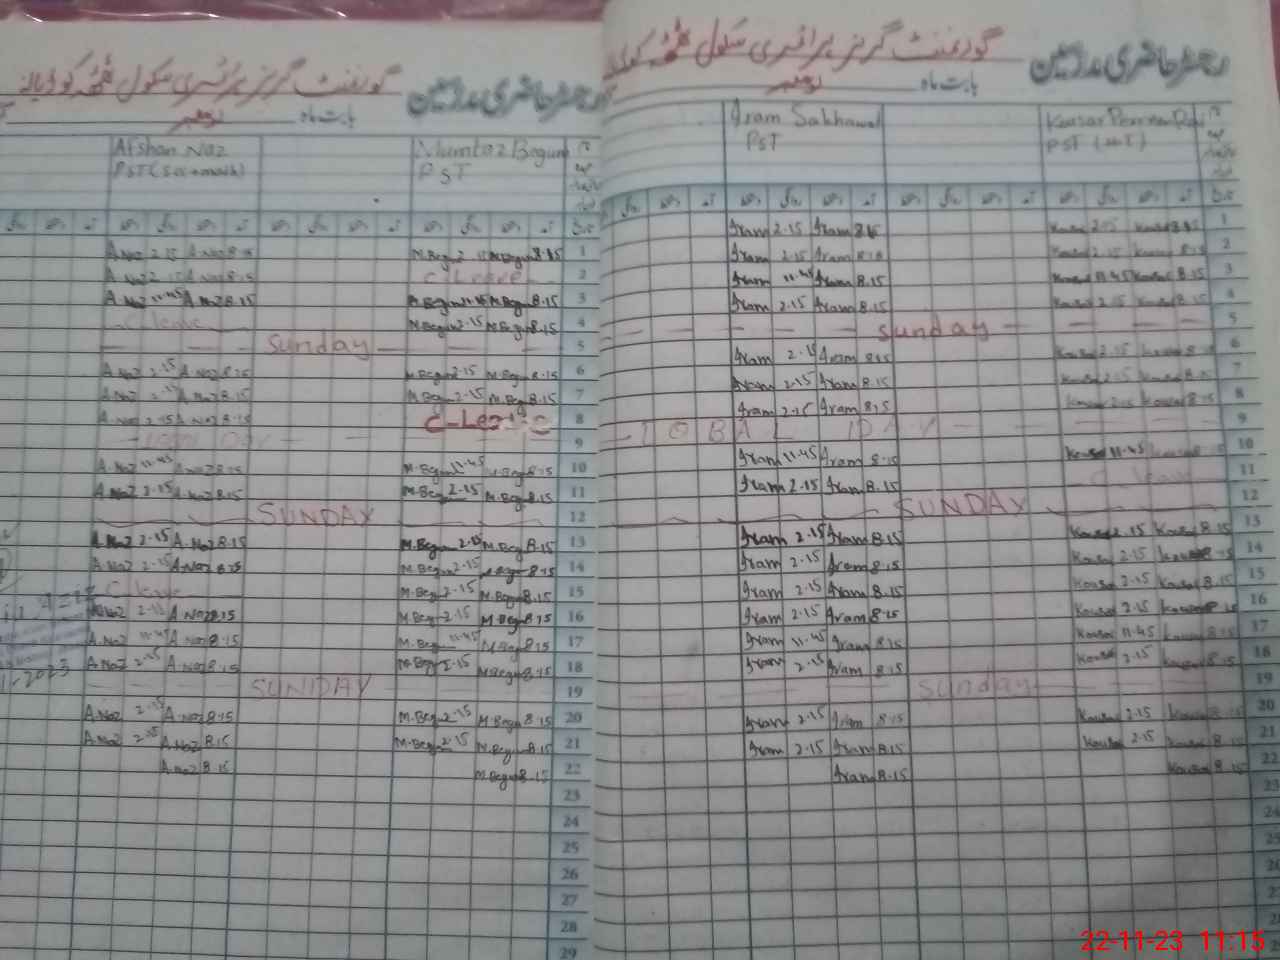 رجسٹر حاضری مدرسین گورنمنٹ گرلز پرائمری سکول
بابت ماہ نومبر
Afshan Naz Mumtaz Begum
PST (Sci+math) PST
A.Naz 2.15 A.Naz 8.15 M.Begum 2.15 M.Begum 8.15 1
A.Naz 2.15 A.Naz 8.15 C Leave 2
A.Naz 11.45 A.Naz 8.15 M.Begum 11.45 M.Begum 8.15 3
C leave M.Begum 2.15 M.Begum 8.15 4
Sunday 5
A.Naz 2.15 A.Naz 8.15 M.Begum 2.15 M.Begum 8.15 6
A.Naz 2.15 A.Naz 8.15 M.Begum 2.15 M.Begum 8.15 7
A.Naz 2.15 A.Naz 8.15 C-Leave 8
Day 9
A.Naz 11.45 A.Naz 8.15 M.Begum 11.45 M.Begum 8.15 10
A.Naz 2.15 A.Naz 8.15 M.Begum 2.15 M.Begum 8.15 11
SUNDAY 12
A.Naz 2.15 A.Naz 8.15 M.Begum 2.15 M.Begum 8.15 13
A.Naz 2.15 A.Naz 8.15 M.Begum 2.15 M.Begum 8.15 14
C leave M.Begum 2.15 M.Begum 8.15 15
A.Naz 2.15 A.Naz 8.15 M.Begum 2.15 M.Begum 8.15 16
A.Naz 11.45 A.Naz 8.15 M.Begum 11.45 M.Begum 8.15 17
A.Naz 2.15 A.Naz 8.15 M.Begum 2.15 M.Begum 8.15 18
SUNDAY 19
A.Naz 2.15 A.Naz 8.15 M.Begum 2.15 M.Begum 8.15 20
A.Naz 2.15 A.Naz 8.15 M.Begum 2.15 M.Begum 8.15 21
A.Naz 8.15 M.Begum 8.15 22
23
24
25
26
27
28
29
رجسٹر حاضری مدرسین گورنمنٹ گرلز پرائمری سکول
بابت ماہ نومبر
Iram Sakhawat Kausar Perveen
PST PST (HT)
Iram 2.15 Iram 8.15 Kausar 2.15 Kausar 8.15 1
Iram 2.15 Iram 8.15 Kausar 2.15 Kausar 8.15 2
Iram 11.45 Iram 8.15 Kausar 11.45 Kausar 8.15 3
Iram 2.15 Iram 8.15 Kausar 2.15 Kausar 8.15 4
Sunday 5
Iram 2.15 Iram 8.15 Kausar 2.15 Kausar 8.15 6
Iram 2.15 Iram 8.15 Kausar 2.15 Kausar 8.15 7
Iram 2.15 Iram 8.15 Kausar 2.15 Kausar 8.15 8
IQBAL DAY 9
Iram 11.45 Iram 8.15 Kausar 11.45 Kausar 8.15 10
Iram 2.15 Iram 8.15 C leave 11
SUNDAY 12
Iram 2.15 Iram 8.15 Kausar 2.15 Kausar 8.15 13
Iram 2.15 Iram 8.15 Kausar 2.15 Kausar 8.15 14
Iram 2.15 Iram 8.15 Kausar 2.15 Kausar 8.15 15
Iram 2.15 Iram 8.15 Kausar 2.15 Kausar 8.15 16
Iram 11.45 Iram 8.15 Kausar 11.45 Kausar 8.15 17
Iram 2.15 Iram 8.15 Kausar 2.15 Kausar 8.15 18
Sunday 19
Iram 2.15 Iram 8.15 Kausar 2.15 Kausar 8.15 20
Iram 2.15 Iram 8.15 Kausar 2.15 Kausar 8.15 21
Iram 8.15 Kausar 8.15 22
23
24
25
26
22-11-23 11:15